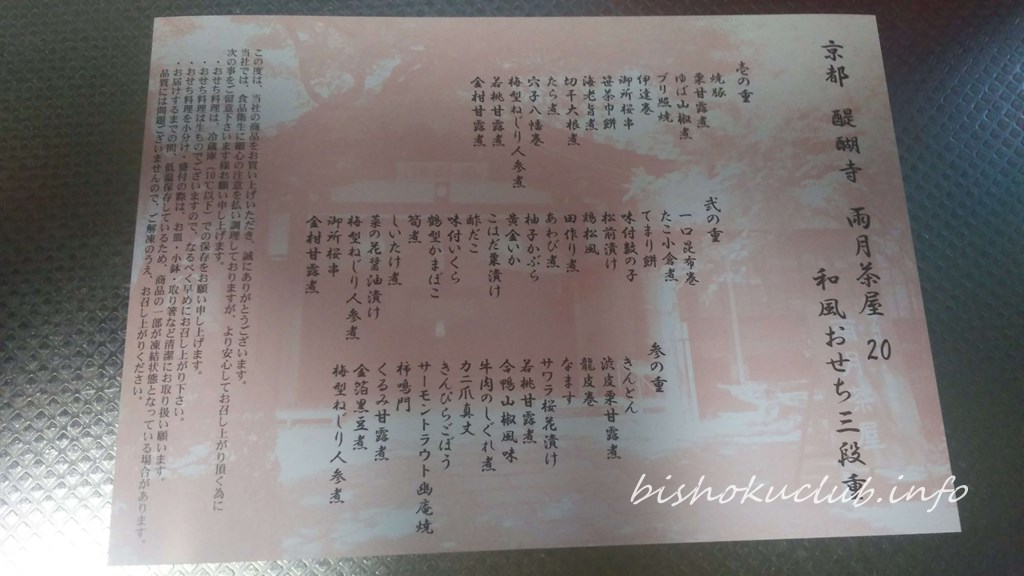 京都 醍醐寺 雨月茶屋 20
和風おせち三段重
壱の重
焼豚
栗甘露煮
ゆば山椒煮
ブリ照焼
伊達巻
御所桜串
笹茶巾餅
海老旨煮
切干大根煮
たら煮
穴子八幡巻
梅型ねじり人参煮
若桃甘露煮
金柑甘露煮
弐の重
一口昆布巻
たこ小倉煮
てまり餅
味付数の子
松前漬け
鶏松風
田作り煮
あわび煮
柚子かぶら
黄金いか
こはだ粟漬け
酢だこ
味付いくら
鶴型かまぼこ
筍煮
しいたけ煮
菜の花醤油漬け
梅型ねじり人参煮
御所桜串
金柑甘露煮
参の重
きんとん
渋皮栗甘露煮
龍皮巻
なます
サワラ桜花漬け
若桃甘露煮
合鴨山椒風味
牛肉のしぐれ煮
カニ爪真丈
きんぴらごぼう
サーモントラウト幽庵焼
柿鳴門
くるみ甘露煮
金箔黒豆煮
梅型ねじり人参煮
この度は、当社の商品をお買い上げいただき、誠にありがとうございます。
当社では、食品衛生に細心の注意を払い調理しておりますが、より安心してお召し上がり頂く為に
次の事をご留意下さいます様お願い申し上げます。
・おせち料理は、冷蔵庫（10℃以下）での保存をお願い申し上げます。
・おせち料理は生ものでございますので、なるべく早めにお召し上がり下さい。
・おせち料理を小分け・盛付の際は、お皿・小鉢・取り箸など清潔にお取り扱い願います。
・お届けするまでの間、低温保存としているため、商品の一部が凍結状態となっている場合があります。
品質には問題ございませんので、ご解凍のうえ、お召し上がりください。
bishokuclub.info